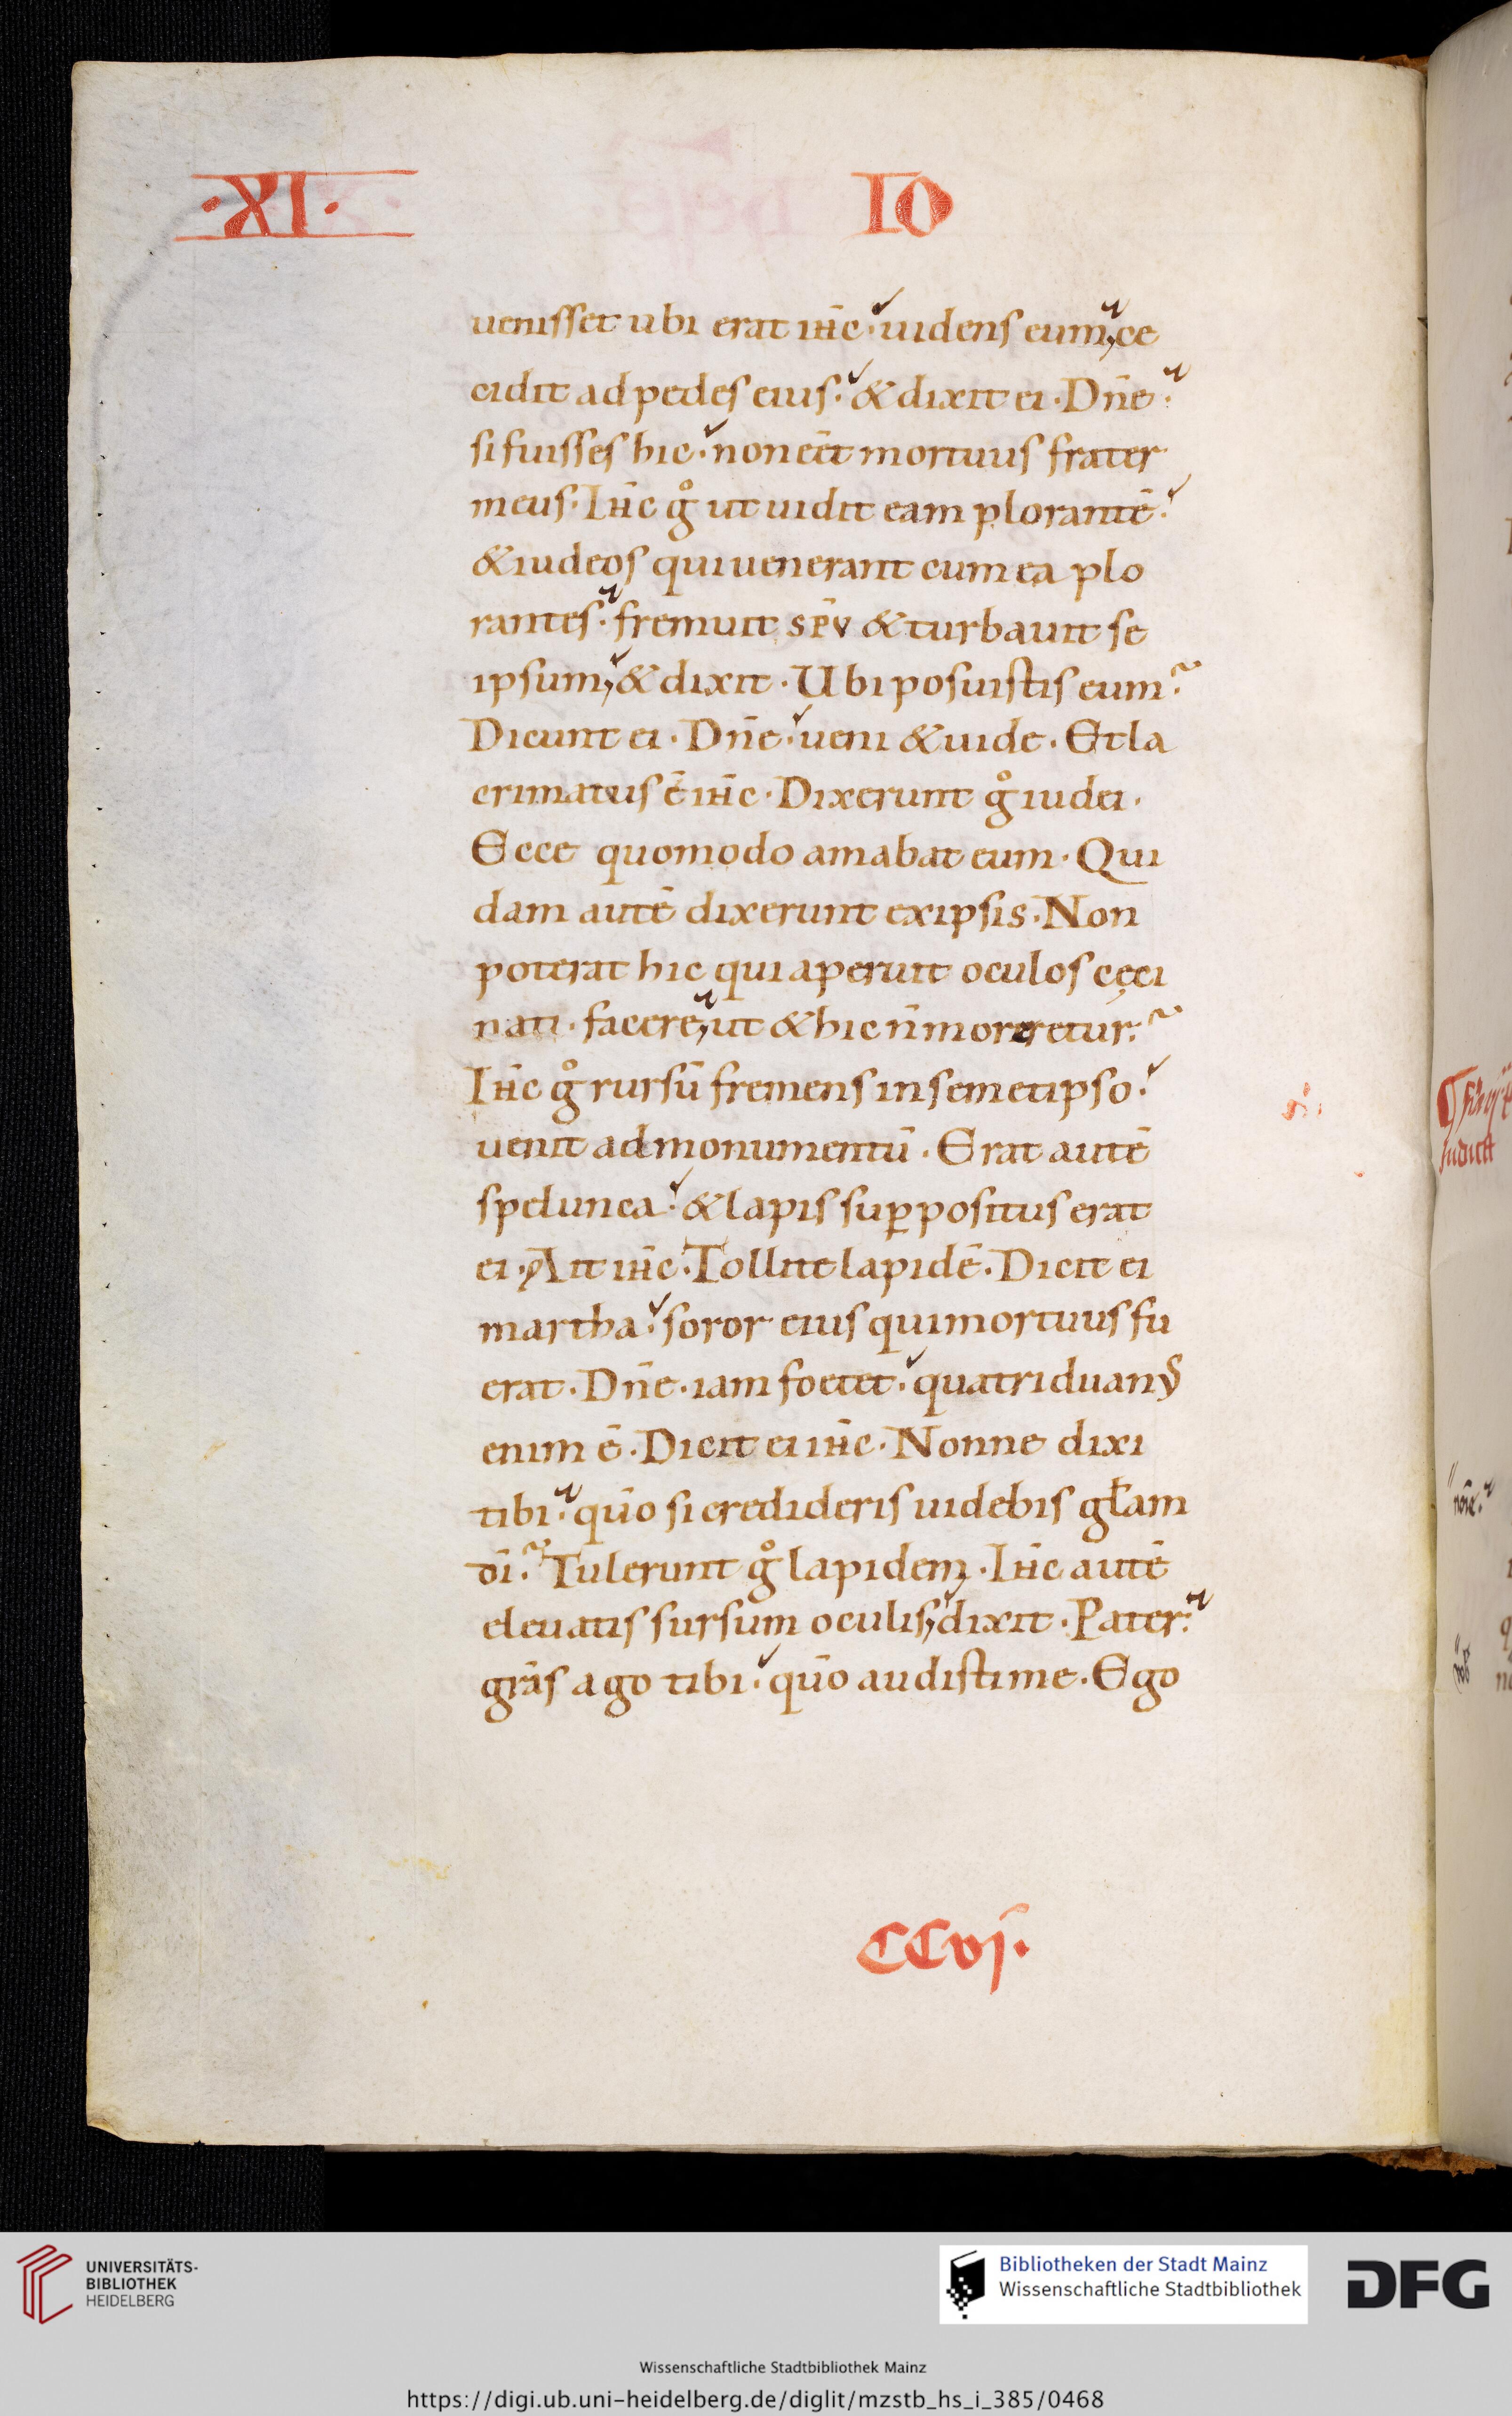 ·XI· IO
uenisset ubi erat ihc. uidens eum, ce
cidit ad pedes eius. & dixit ei. Dñe.
si fuisses hic. non eēt mortuus frater
meus. Ihc g° ut uidit eam plorantē.
& iudeos qui uenerant cum ea plo
rantes. fremuit spv & turbauit se
ipsum, & dixit. Ubi posuistis eum?
Dicunt ei. Dñe. ueni & uide. Et la
crimatus ē ihc. Dixerunt g° iudei.
Ecce quomodo amabat eum. Qui
dam autē dixerunt ex ipsis. Non
poterat hic qui aperuit oculos cęci
nati. facere, ut & hic n̄ moreretur?
Ihc g° rursū fremens in semetipso.
uenit ad monumentū. Erat autē
spelunca. & lapis sup̱positus erat
ei. Ait ihc. Tollite lapidē. Dicit ei
martha. soror eius qui mortuus fu
erat. Dñe. iam foetet. quatriduanꝰ
enim ē. Dicit ei ihc. Nonne dixi
tibi. qūo si credideris uidebis głam
dī? Tulerunt g° lapidem. Ihc autē
eleuatis sursum oculis, dixit. Pater.
grās ago tibi. qūo audisti me. Ego
CCvj.
UNIVERSITÄTS-
BIBLIOTHEK
HEIDELBERG
Bibliotheken der Stadt Mainz
Wissenschaftliche Stadtbibliothek
DFG
Wissenschaftliche Stadtbibliothek Mainz
https://digi.ub.uni-heidelberg.de/diglit/mzstb_hs_i_385/0468